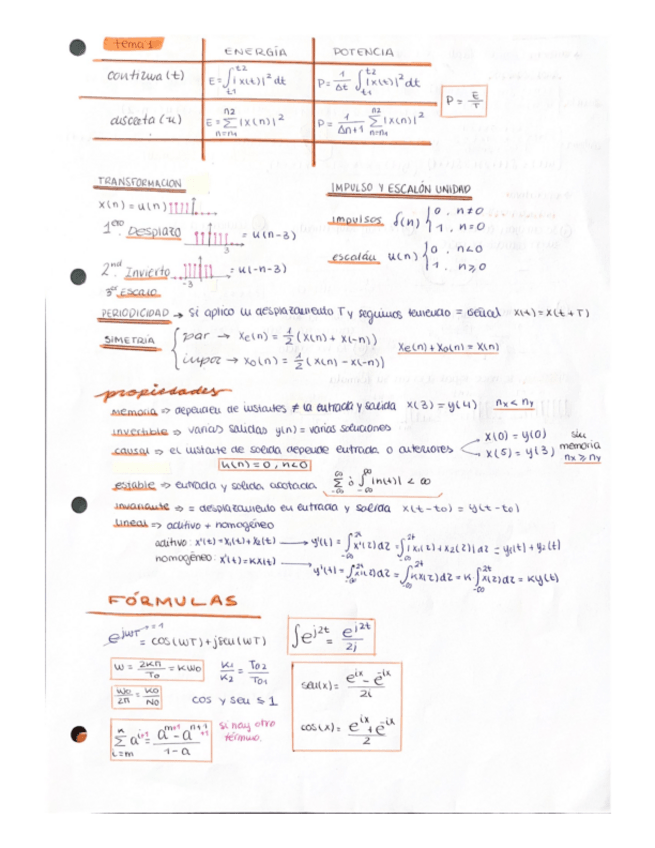 tema 1
ENERGÍA POTENCIA
continua (t) E = ∫_{t1}^{t2} |x(t)|² dt P = 1/Δt ∫_{t1}^{t2} |x(t)|² dt
P = E/T
discreta (n) E = Σ_{n=n1}^{n2} |x(n)|² P = 1/Δn+1 Σ_{n=n1}^{n2} |x(n)|²
TRANSFORMACION
x(n) = u(n)
1ero. Desplazo = u(n-3)
3
2nd Invierto = u(-n-3)
-3
3er Escalo
IMPULSO Y ESCALÓN UNIDAD
impulsos δ(n) { 0, n≠0
1, n=0
escalón u(n) { 0, n<0
1, n≥0
PERIODICIDAD → Si aplico un desplazamiento T y seguimos teniendo = señal x(t) = x(t+T)
SIMETRIA { par → Xe(n) = 1/2 (x(n) + x(-n))
impar → Xo(n) = 1/2 (x(n) - x(-n))
Xe(n) + Xo(n) = X(n)
propiedades
memoria ⇒ dependen de instantes ≠ la entrada y salida x(3) = y(4) nx < ny
invertible ⇒ varias salidas y(n) = varias soluciones
causal ⇒ el instante de salida depende entrada o anteriores x(0) = y(0) sin memoria
x(5) = y(3) nx ≥ ny
h(n) = 0, n<0
estable ⇒ entrada y salida acotada Σ_{-∞}^{∞} ó ∫_{-∞}^{∞} |h(t)| < ∞
invariante ⇒ = desplazamiento en entrada y salida x(t-to) = y(t-to)
lineal ⇒ aditivo + homogéneo
aditivo: x'(t) = x1(t) + x2(t) → y'(t) = ∫_{-∞}^{2t} x'(z)dz = ∫_{-∞}^{2t} |x1(z) + x2(z)| dz = y1(t) + y2(t)
homogéneo: x'(t) = Kx(t) → y'(t) = ∫_{-∞}^{2t} x(z)dz = ∫_{-∞}^{2t} Kx(z)dz = K·∫_{-∞}^{2t} x(z)dz = Ky(t)
FÓRMULAS
e^{jωT} = cos(ωT) + jsen(ωT) = 1
∫e^{j2t} = e^{j2t}/2j
ω = 2Kπ/To = Kωo K1/K2 = To2/To1
ωo/2π = Ko/No cos y sen ≤ 1
Σ_{i=m}^{n} a^{i+1} = a^{m+1} - a^{n+1+1} / 1-a si hay otro término.
sen(x) = e^{ix} - e^{-ix} / 2i
cos(x) = e^{ix} + e^{-ix} / 2